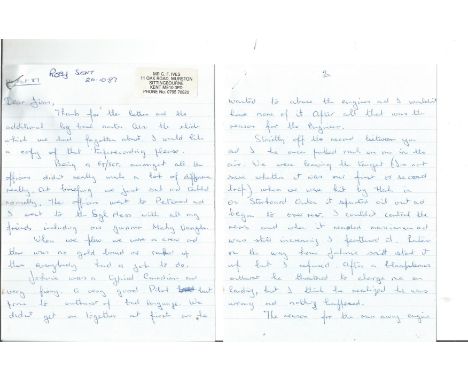 REPLY SENT
20-10-87
MR C. F. IVES
11 OAK ROAD, MURSTON
SITTINGBOURNE
KENT ME10 3PD
PHONE No. 0795 70220
Dear Jim,
Thanks for the letter and the
additional log book entries. Yes the stick
which we had forgotten about I would like
a copy of that
please.
Being a Sgt/Eng. amongst all the
officers didn't really make a lot of difference
really. At briefing we just sat and talked
normally. The officers went to Petwood and
I went to the Sgts Mess with all my
friends including our gunner Micky Vaughan
When we flew we were a crew and
there was no gold braid or
then everybody had a job to do.
was a typical Canadian and
very funny. A very good Pilot but
prone to outbursts of bad language. We
didn't get on together at first as he
2
wanted to abuse the engines and I wouldn't
have none of it. After all that was the
reason for the Engineer.
Strictly off the record between you
and I he once pulled rank on me in the
air. We were leaving the target (I'm not
sure whether it was our first or second
trip) when we were hit by flak in
our Starboard Outer it spurted oil out and
began to over rev. I couldn't control the
revs and when it reached maximum and
was still increasing I feathered it. Later
on the way home
said start it
up but I refused. After a blasphemous
outburst he threatened to charge me on
landing, but I think he realized he was
wrong and nothing happened.
The reason for the run away engine